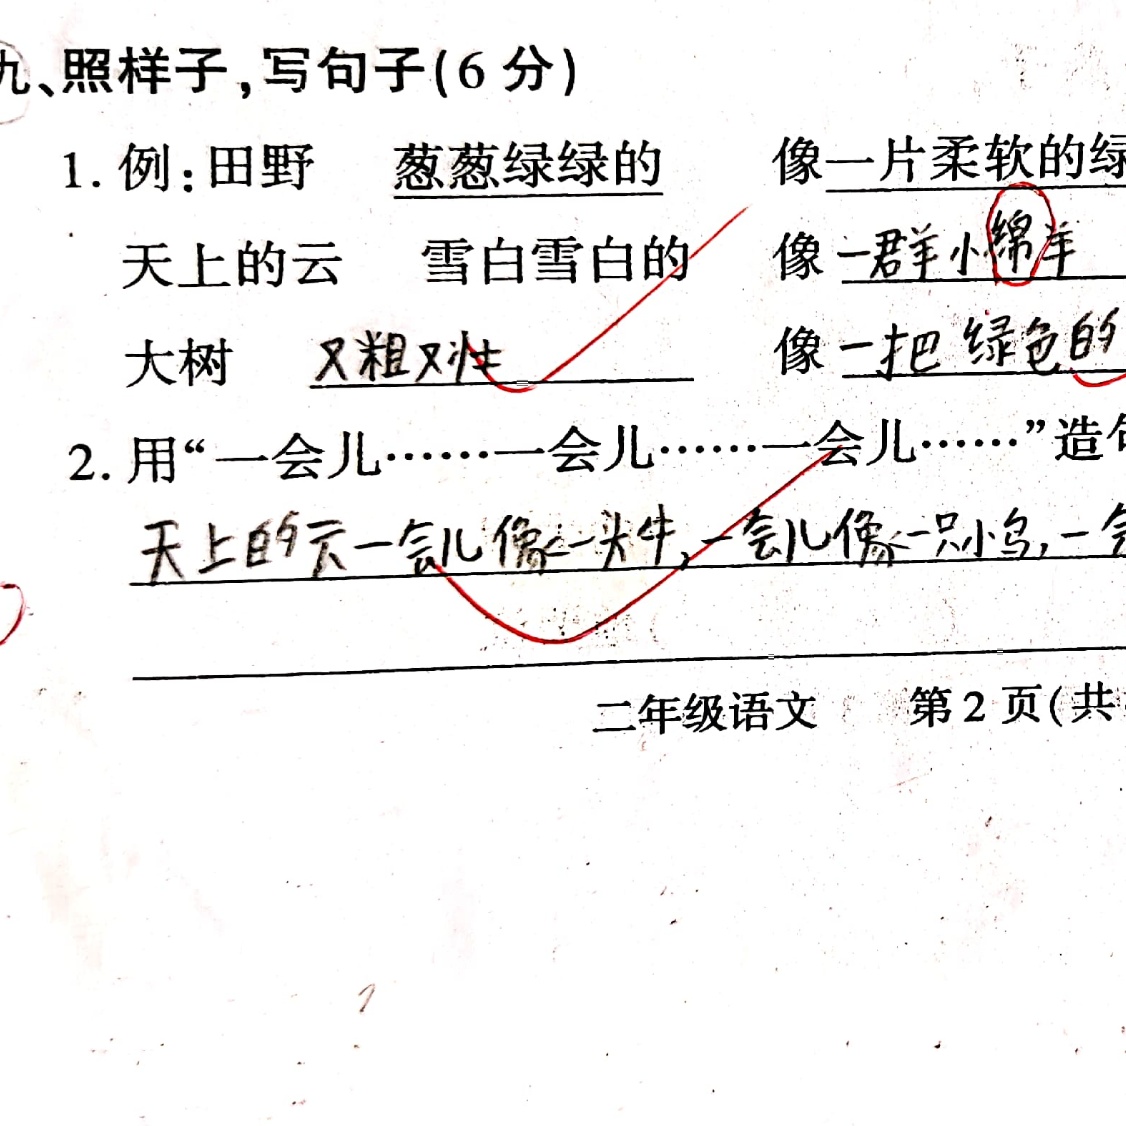 九、照样子,写句子(6分)
1. 例:田野 葱葱绿绿的 像一片柔软的绿
天上的云 雪白雪白的 像一群羊小绵羊
大树 又粗又壮 像一把绿色的
2. 用“一会儿……一会儿……一会儿……”造句
天上的云一会儿像一头牛,一会儿像一只小鸟,一会
二年级语文 第2页(共